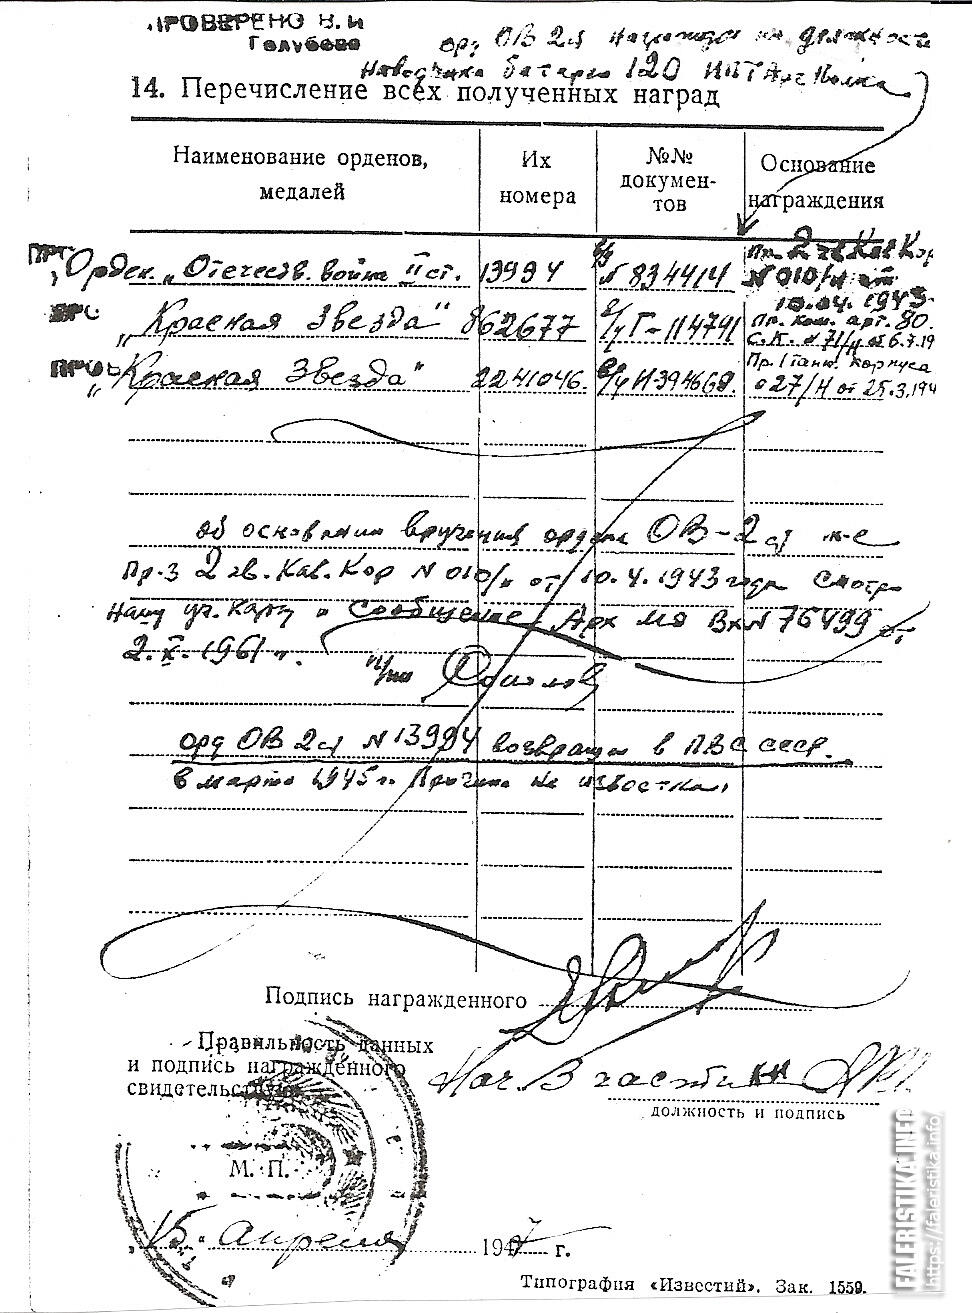 ПРОВЕРЕНО В. И
Голубева
орд ОВ 2ст награжден на должности
Наводчика батареи 120 ИПТАрт Полка
14. Перечисление всех полученных наград
Наименование орденов, медалей
Их номера
№№ документов
Основание награждения
Орден „Отечеств. война IIст. 13994 № 834414 Пр. 2 гв. Кав. Кор N 010/н от 10.04.1943
„Красная Звезда" 862677 Г-114741 Пр. ком. арт. 80. С.К. N 71/н от 6.7.19
„Красная Звезда" 2241046. И-394668. Пр. 1 танк. корпуса 27/н от 25.3.194
об основании вручения ордена ОВ-2ст
Пр-з 2 гв. Кав. Кор N 010/н от 10.4.1943 года смотр
нашу уч. карту и сообщение Арх МО Вх N 76499 от
2.X.1961 г.
орд ОВ 2ст N 13994 возвращен в ПВС СССР.
в марте 1945г. Причина не известна.
Подпись награжденного
Правильность данных
и подпись награжденного
свидетельствую
Нач. 3 части
должность и подпись
М. П.
15. Апреля 1947 г.
Типография «Известий». Зак. 1559.
FALERISTIKA.INFO
https://faleristika.info/